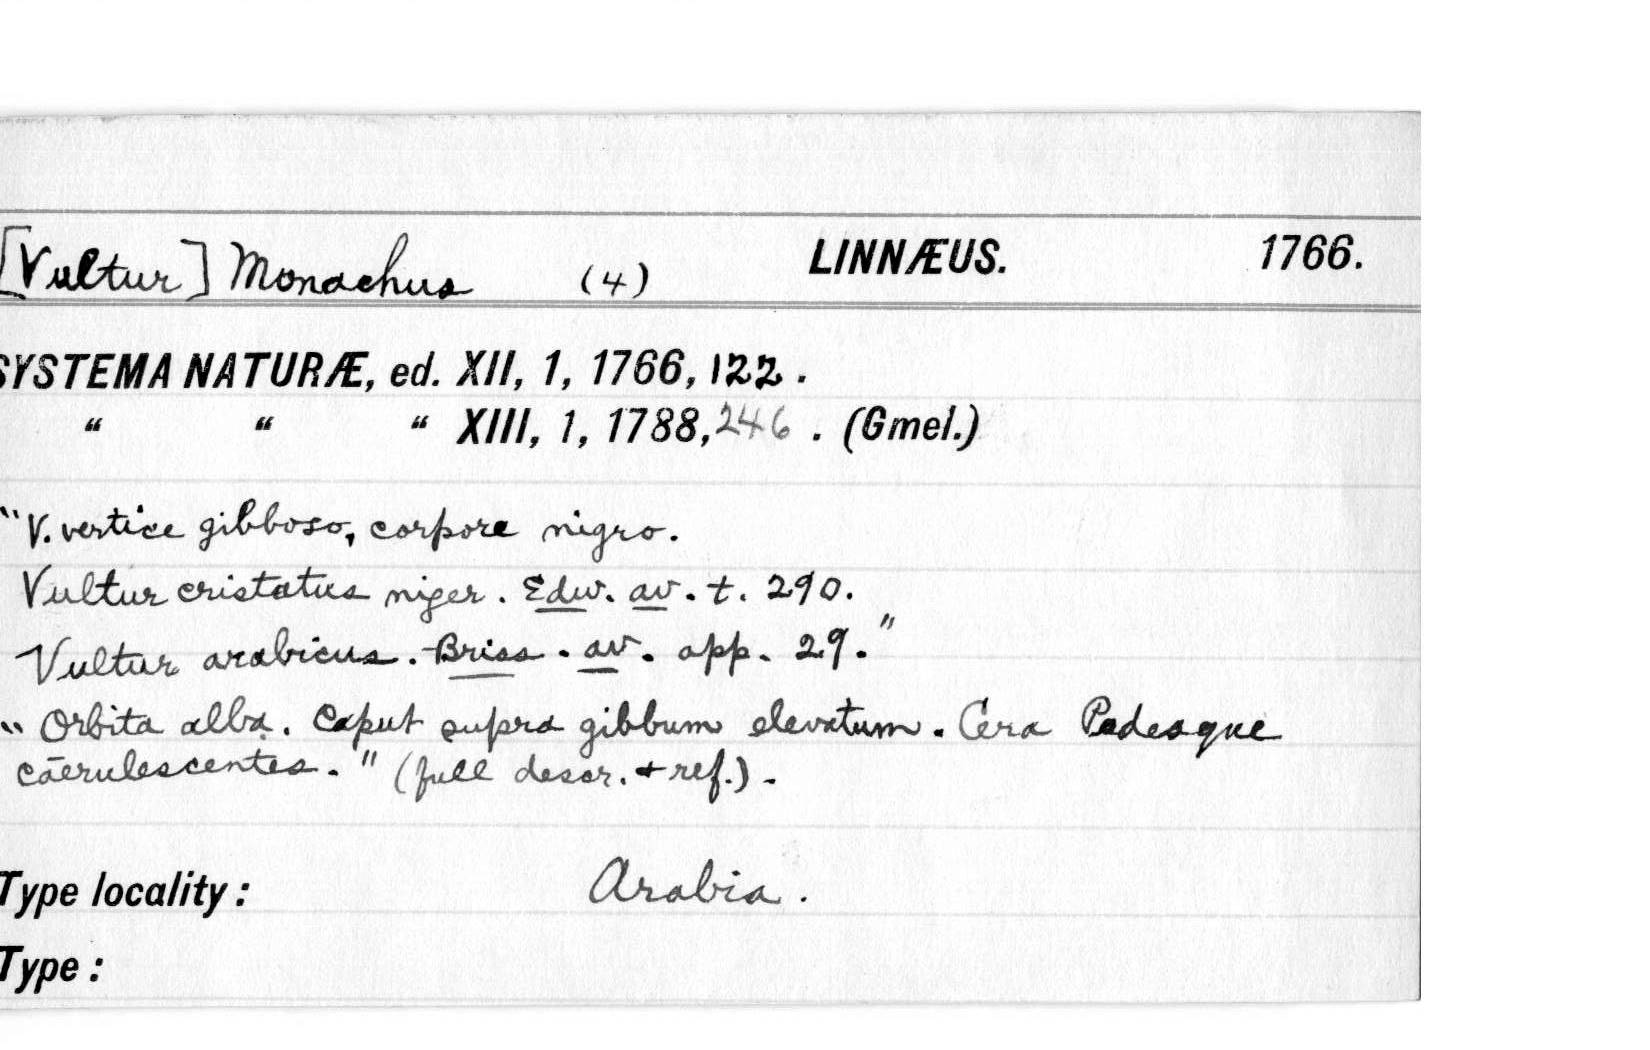 [Vultur] Monachus (4) LINNÆUS. 1766.
SYSTEMA NATURÆ, ed. XII, 1, 1766, 122.
“ “ “ XIII, 1, 1788, 246. (Gmel.)
"V. vertice gibboso, corpore nigro.
Vultur cristatus niger. Edw. av. t. 290.
Vultur arabicus. Briss. av. app. 29."
" Orbita alba. Caput supra gibbum elevatum. Cera Pedesque
cœrulescentes." (full descr. + ref.).
Type locality: Arabia.
Type: